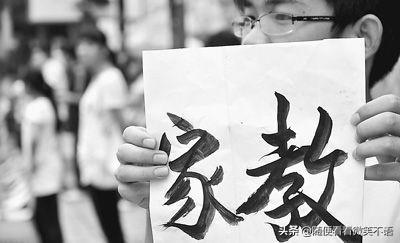 家教
头条@随便看看微笑不语